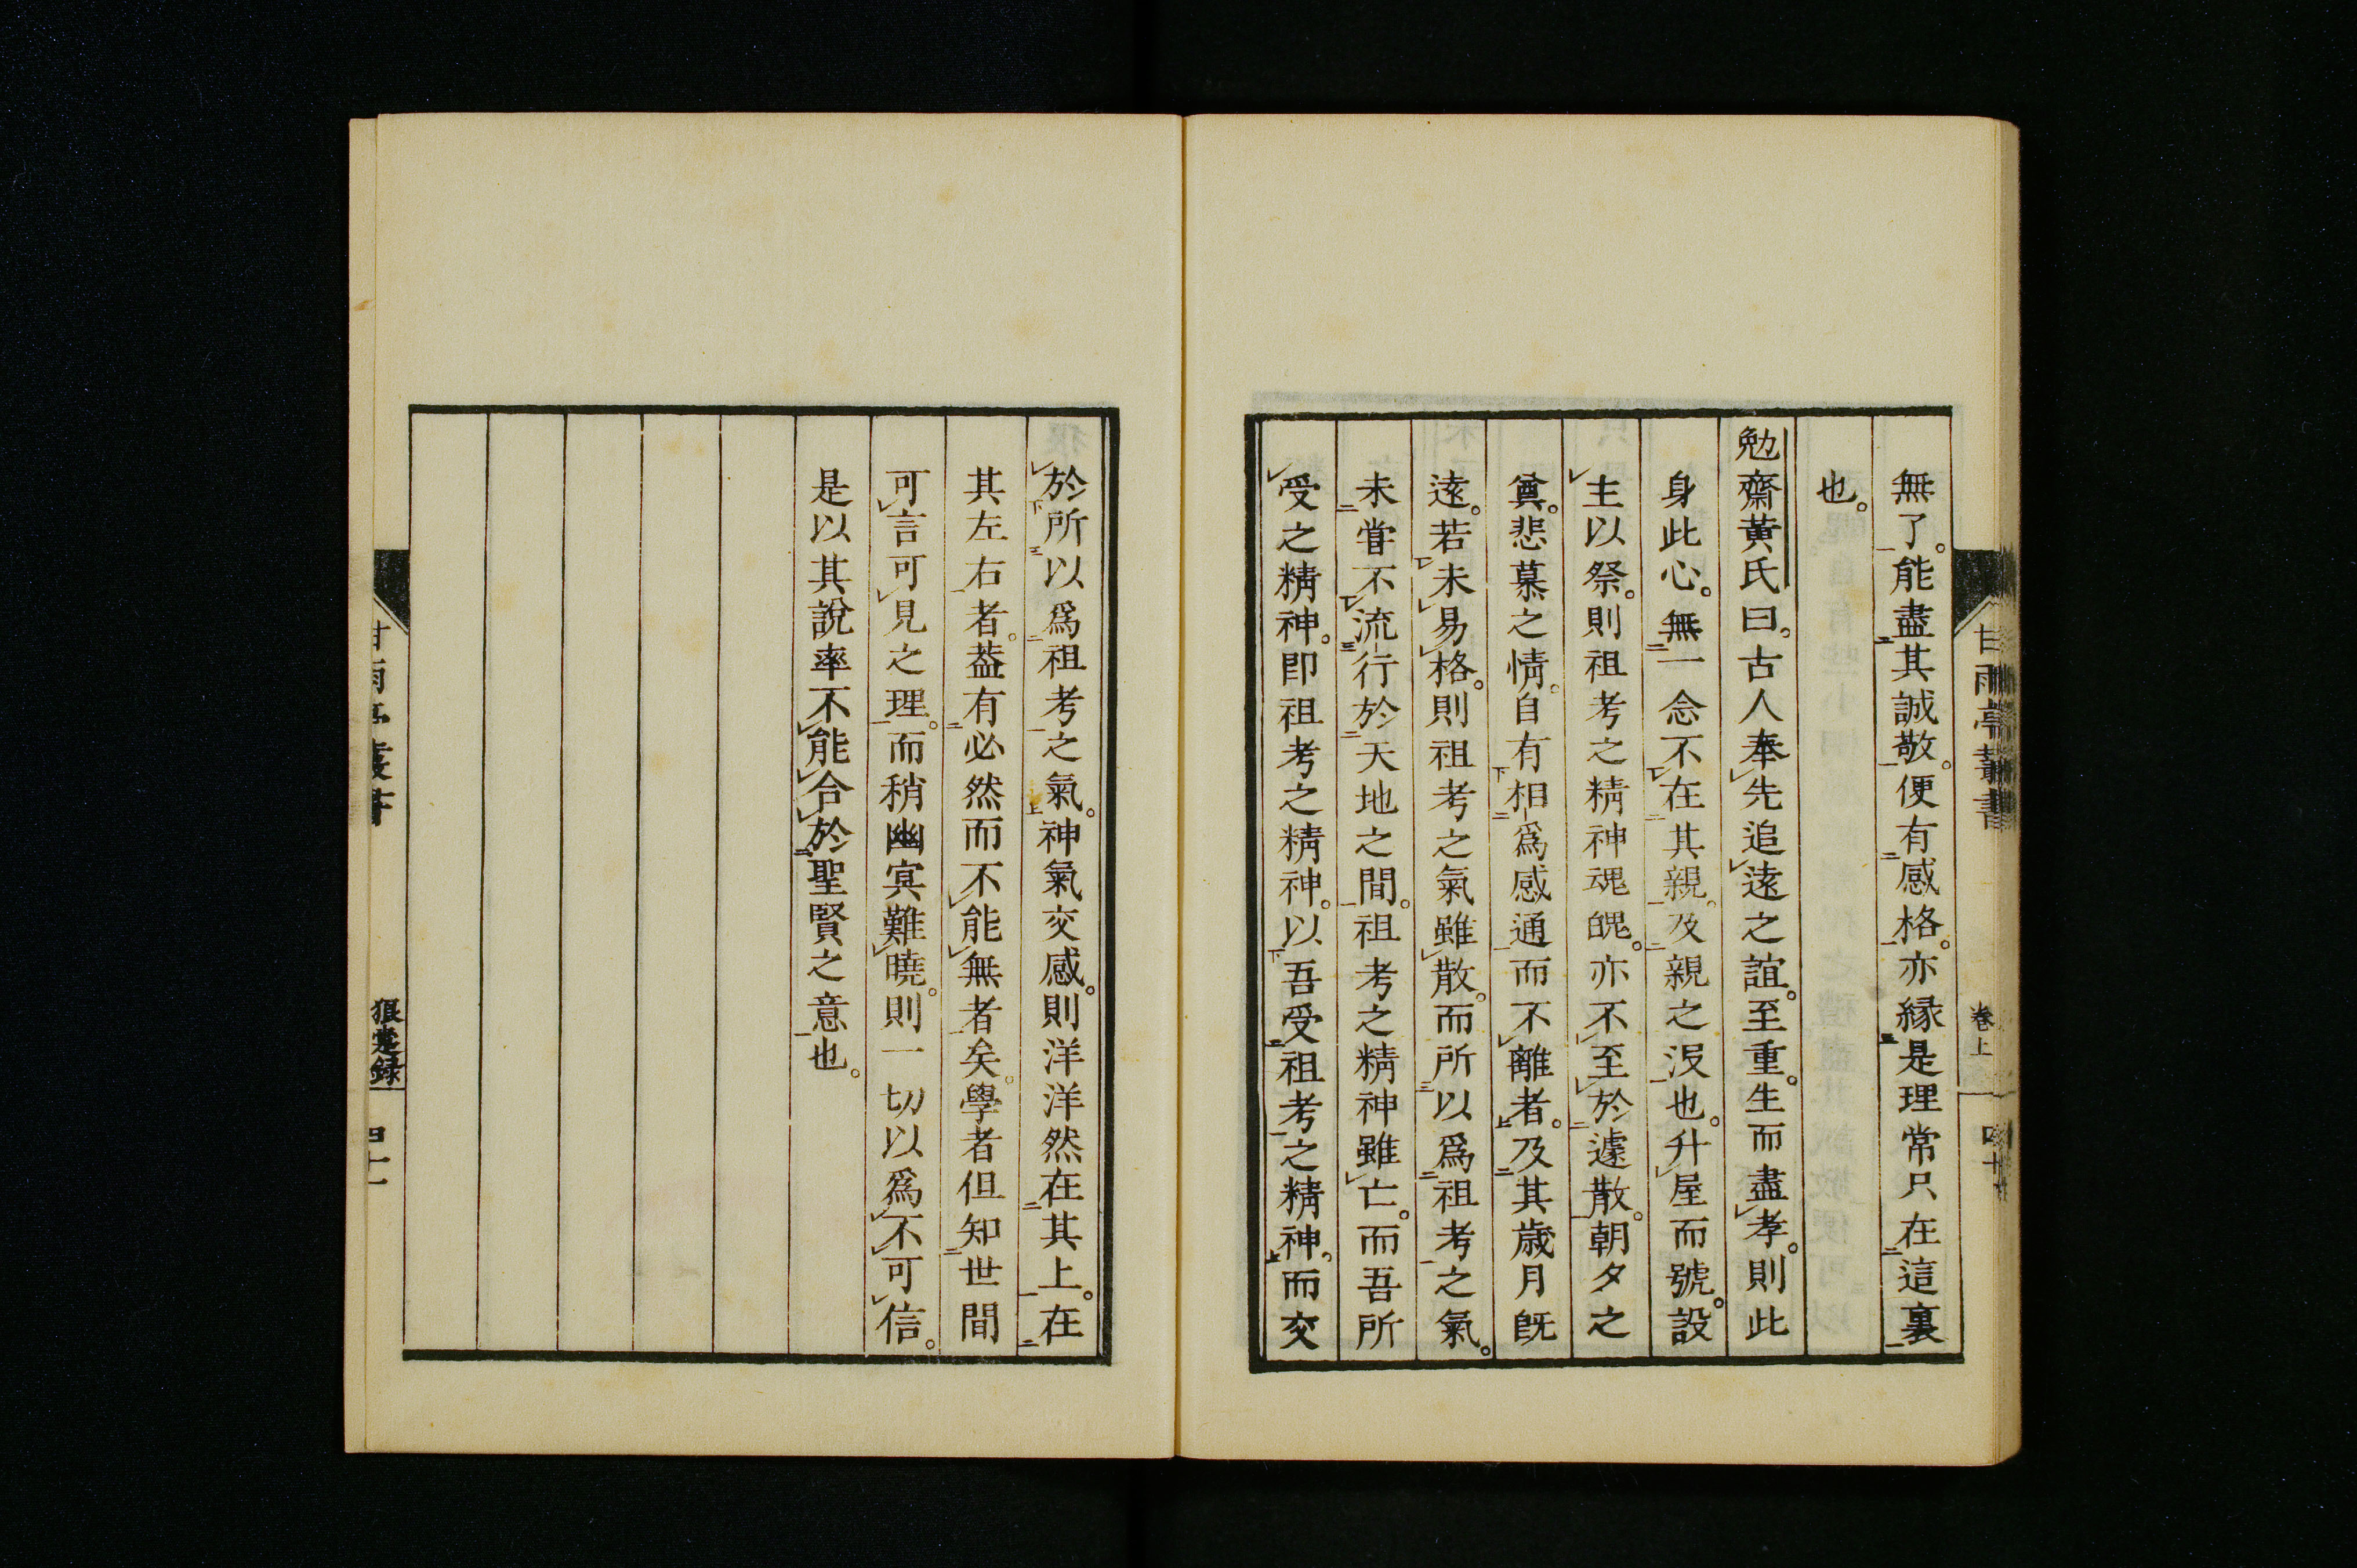 無了。能盡其誠敬。便有感格。亦縁是理常只在這裏
也。
勉齋黃氏曰。古人奉先追遠之誼。至重。生而盡孝。則此
身此心。無一念不在其親。及親之沒也。升屋而號。設
主以祭。則祖考之精神魂魄。亦不至於遽散。朝夕之
奠。悲慕之情。自有相爲感通而不離者。及其歳月旣
遠。若未易格。則祖考之氣雖散。而所以爲祖考之氣。
未甞不流行於天地之間。祖考之精神雖亡。而吾所
受之精神。卽祖考之精神。以吾受祖考之精神。而交
甘雨亭叢書
卷上
四十
於所以爲祖考之氣。神氣交感。則洋洋然在其上。在
其左右者。葢有必然而不能無者矣。學者但知世間
可言可見之理。而稍幽冥難曉。則一切以爲不可信。
是以其說率不能合於聖賢之意也。
甘雨亭叢書
狼疐録
四十一